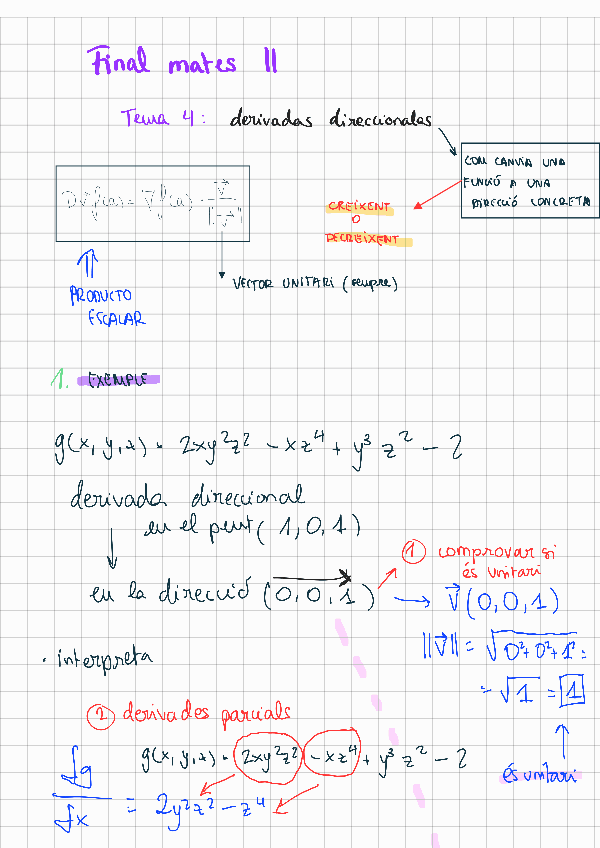 Final mates II
Tema 4: derivadas direccionales
COM CANVIA UNA
FUNCIÓ A UNA
DIRECCIÓ CONCRETA
D_v⃗ f(a) = ∇f(a) · v⃗/||v⃗||
CREIXENT
O
DECREIXENT
VECTOR UNITARI (sempre)
PRODUCTO
ESCALAR
1. EXEMPLE
g(x, y, z) = 2xy²z² - xz⁴ + y³z² - 2
derivada direccional
en el punt (1, 0, 1)
en la direcció (0, 0, 1)
① comprovar si
és unitari
v⃗ (0, 0, 1)
||v⃗|| = √0²+0²+1² =
= √1 = 1
és unitari
· interpreta
② derivades parcials
g(x, y, z) = 2xy²z² - xz⁴ + y³z² - 2
fg/fx = 2y²z² - z⁴